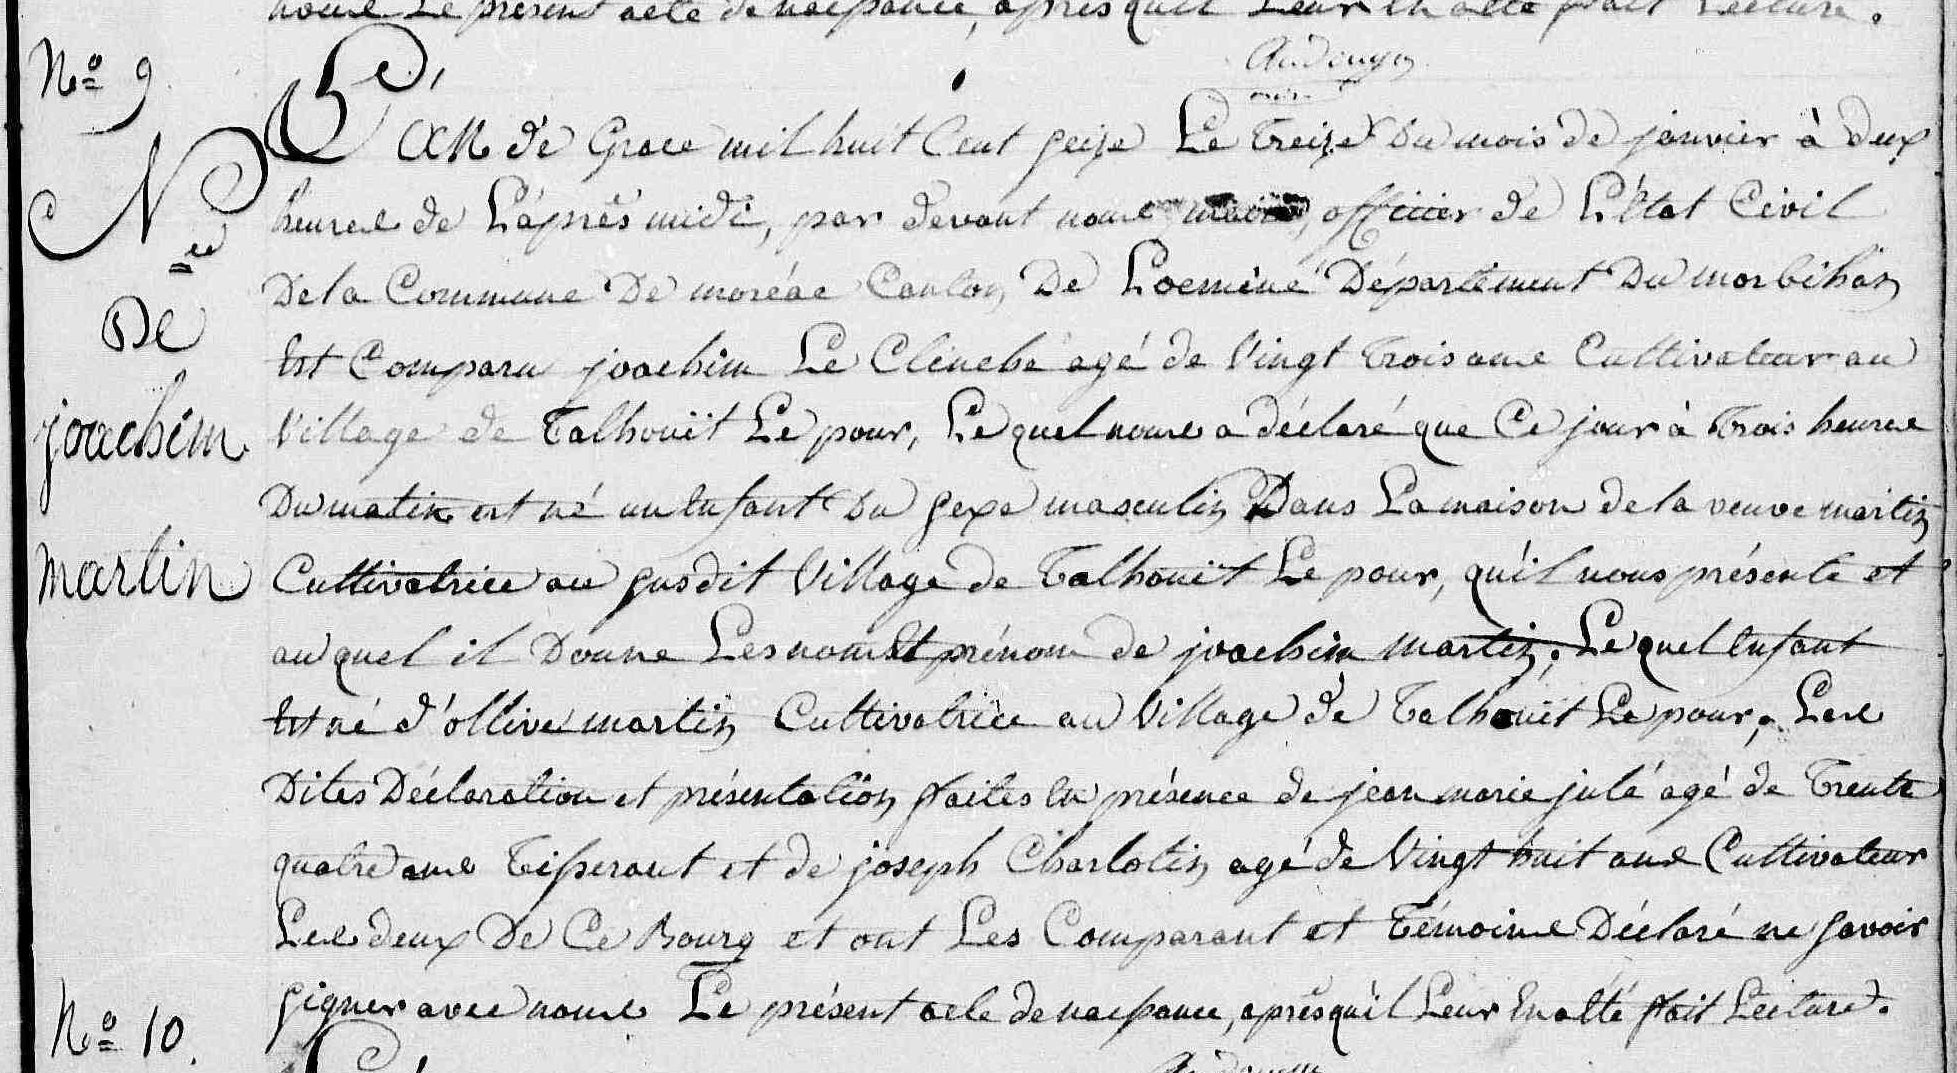 nous Le présent acte de naissance, après quil Leur en a été fait Lecture.
Audouyn
maire
Nº 9
L'AN de Grace mil huit Cent Seize Le Treize Du mois de janvier à deux
heures de L'après midi, par devant nous maire, officier de L'Etat Civil
De la Commune De moréac Canton De Locminé Département Du morbihan
Est Comparu joachim Le Clinche agé de Vingt Trois ans Cultivateur au
Village de Talhouit Le pour, Le quel nous a déclaré que Ce jour à Trois heures
Du matin est né un Enfant Du Sexe masculin Dans La maison de la veuve martin
Cultivatrice au Susdit Village de Talhouit Le pour, qu'il nous présente et
au quel il Donne Les noms Et prénom de joachim martin, Le quel Enfant
Est né d'ollive martin Cultivatrice au Village de Talhouit Le pour, Les
Dites Déclaration et présentation faites En présence de jean marie julé agé de Trente
quatre ans Tisserant et de joseph Charlotin agé de Vingt huit ans Cultivateur
Les deux De Ce Bourg et ont Les Comparant et Témoins Déclaré ne Savoir
Signer avec nous Le présent acte de naissance, après qu'il Leur En a été fait Lecture.
Née
De
joachim
martin
Nº 10.